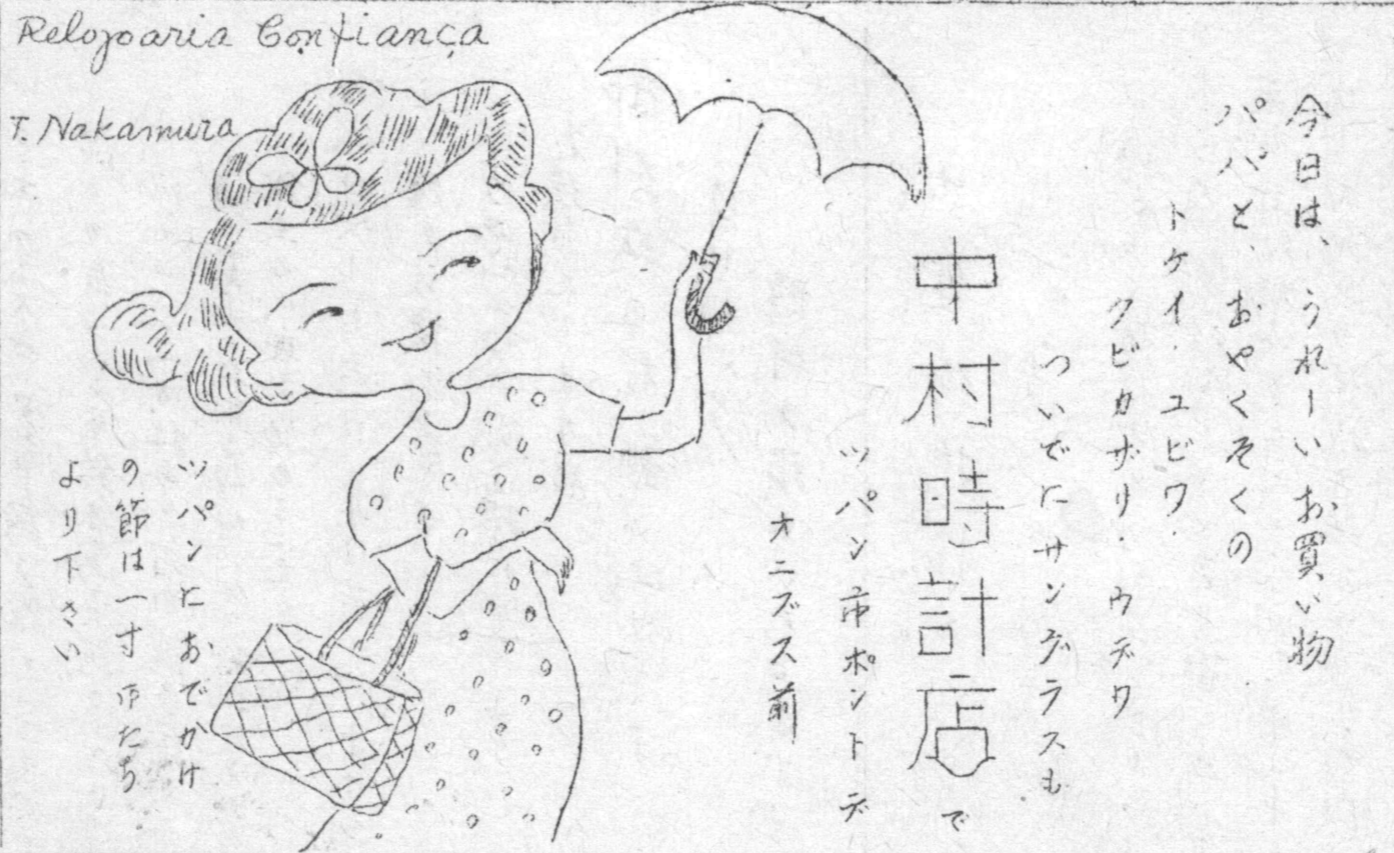 Relojoaria Confiança
T. Nakamura
今日は、うれーいお買い物
パパと、おやくそくの
トケイ．ユビワ．
クビカザリ．ウデワ
ついでにサングラスも
中村時計店で
ツパン市ポントデ
オニブス前
ツパンにおでかけ
の節は一寸 御たち
より下さい